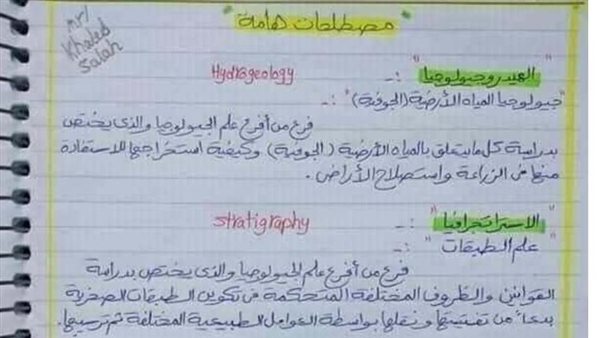 Mr/
Khaled
Salah
مصطلحات هامة
"الهيدروجيولوجيا" :- Hydrageology
"جيولوجيا المياه الأرضية (الجوفية)" :-
فرع من أفرع علم الجيولوجيا والذى يختص
بدراسة كل مايتعلق بالمياه الأرضية (الجوفية) وكيفية استخراجها للاستفادة
منها فى الزراعة واستصلاح الأراض .
"الاستراتجرافيا" :- stratigraphy
"علم الطبقات" :-
فرع من أفرع علم الجيولوجيا والذى يختص بدراسة
القوانين والظروف المختلفة المتحكمة فى تكوين الطبقات الصخرية
بدءاً من تفتيتها ونقلها بواسطة العوامل الطبيعية المختلفة ثم ترسيبها.